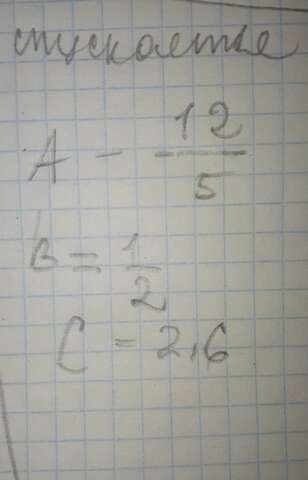 спускается
A - -12/5
B = 1/2
C = 2,6